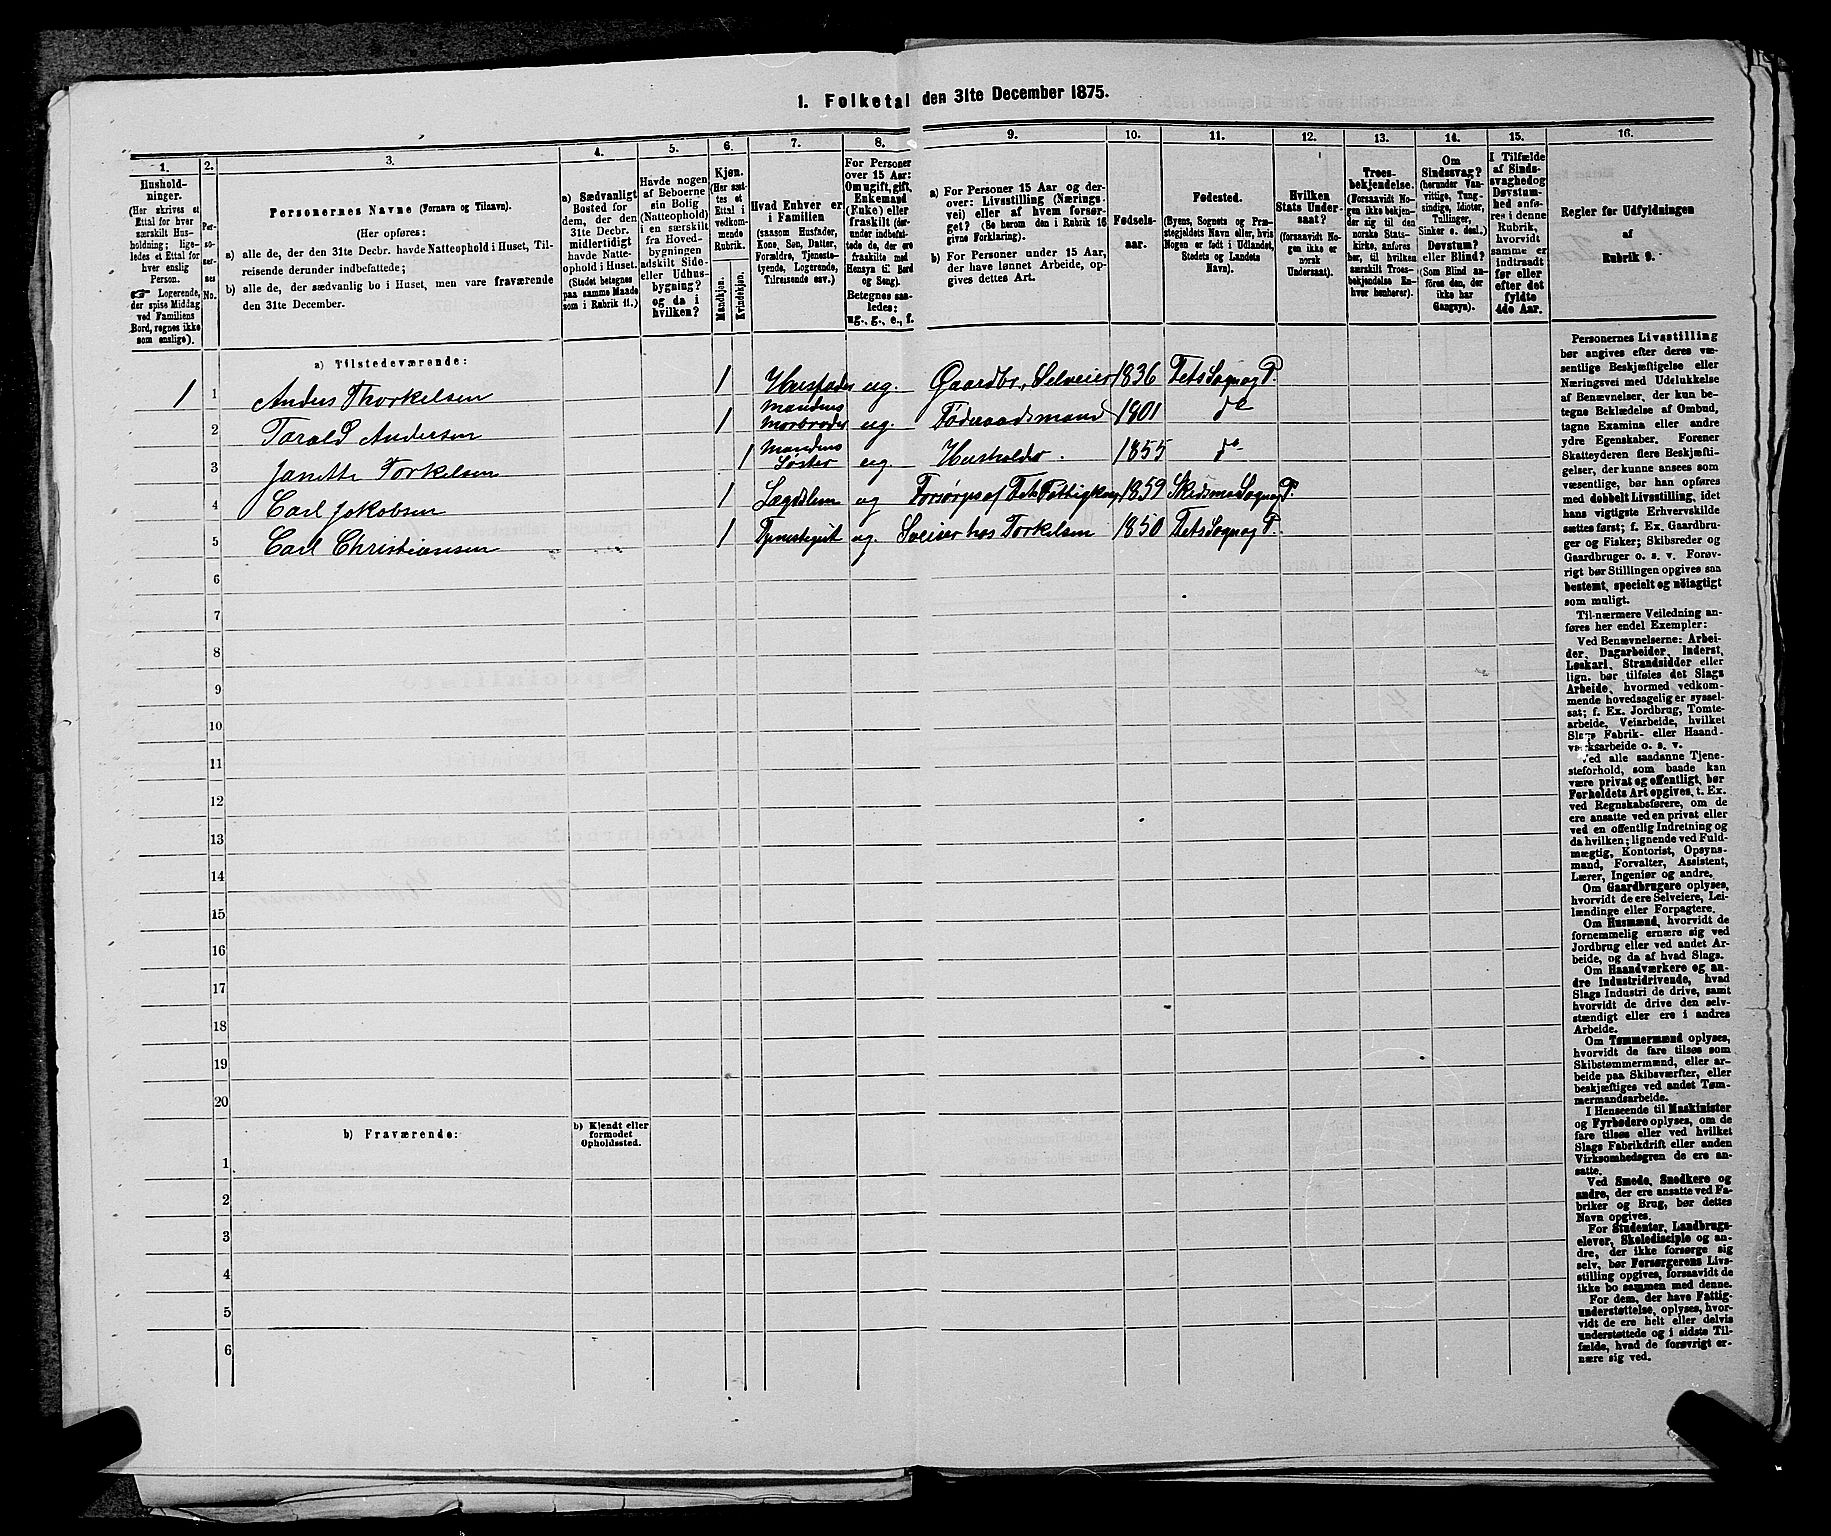 1. Folketal den 31te December 1875.
1.
2.
3.
4.
5.
6.
7.
8.
9.
10.
11.
12.
13.
14.
15.
16.
Husholdninger.
(Her skrives et
Ettal for hver
særskilt Husholdning;
ligeledes et Ettal for
hver enslig
Person.
☞ Logerende,
der spise Middag
ved Familiens
Bord, regnes ikke
som enslige).
Personernes No.
Personernes Navne (Fornavn og Tilnavn).
(Her opføres:
a) alle de, der den 31te Decbr. havde Natteophold i Huset, Tilreisende
derunder indbefattede;
b) alle de, der sædvanlig bo i Huset, men vare fraværende
den 31te December.
a) Sædvanligt
Bosted for
dem, der den
31te Decbr.
midlertidigt
havde Natteophold
i Huset.
(Stedet betegnes
paa samme Maade
som i Rubrik 11.)
Havde nogen
af Beboerne
sin Bolig
(Natteophold)
i en særskilt
fra Hovedbygningen
adskilt Side- eller
Udhusbygning?
og da i
hvilken?
Kjøn.
(Her sættes et
Ettal i
vedkommende
Rubrik.
Mandkjøn.
Kvindekjøn.
Hvad Enhver er
i Familien
(saasom Husfader,
Kone, Søn, Datter,
Forældre, Tjenestetyende,
Logerende,
Tilreisende osv.)
For Personer
over 15 Aar:
Om ugift, gift,
Enkemand
(Enke) eller
fraskilt (derunder
indbefattede
de, der ere
fraskilte med
Hensyn til Bord
og Seng).
Betegnes saaledes:
ug., g., e., f.
a) For Personer 15 Aar og derover:
Livsstilling (Næringsvei)
eller af hvem forsørget?
(Se herom den i Rubrik 16
givne Forklaring).
b) For Personer under 15 Aar,
der have lønnet Arbeide, opgives
dettes Art.
Fødselsaar.
Fødested.
(Byens, Sognets og Præstegjeldets
Navn eller, hvis
Nogen er født i Udlandet,
Stedets og Landets
Navn).
Hvilken
Stats Undersaat?
(forsaavidt Nogen
ikke er
norsk
Undersaat).
Troesbekjendelse.
(Forsaavidt Nogen
ikke bekjender
sig til den
norske Statskirke,
anføres
her, til hvilken
særskilt Troesbekjendelse
Enhver
henhører).
Om
Sindssvag?
(herunder Vanvittige,
Tungsindige,
Idioter,
Tullinger,
Sinker o. desl.)
Døvstum?
eller Blind?
(Som Blind anføres
den, der
ikke har
Gangsyn).
I Tilfælde
af Sindssvaghed
og
Døvstumhed
anføres
i denne
Rubrik,
hvorvidt
samme er
indtraadt
før eller
efter det
fyldte
4de Aar.
Regler for Udfyldningen
af
Rubrik 9.
a) Tilstedeværende:
1 1 Anders Thorkelsen 1 Husfader ug. Gaardbr., Selveier 1836 Fets Sogn og P.
2 Tarald Andersen 1 Mandens Morbroder ug. Føderaadsmand 1801 do
3 Janette Torkelsen 1 Mandens Søster ug Husholder. 1855 do
4 Carl Jakobsen 1 Lægdslem ug Forsørges af Fets Fattigk. 1859 Skedsmo Sogn og P.
5 Carl Christiansen 1 Tjenestegut ug Sveiser hos Torkelsen 1850 Fets Sogn og P.
6
7
8
9
10
11
12
13
14
15
16
17
18
19
20
b) Fraværende:
b) Kjendt eller
formodet
Opholdssted.
1
2
3
4
5
6
Personernes Livsstilling
bør angives efter deres væsentlige
Beskjæftigelse eller
Næringsvei med Udelukkelse
af Benævnelser, der kun betegne
Beklædelse af Ombud,
tagne Examina eller andre
ydre Egenskaber. Forener
Skatteyderen flere Beskjæftigelser,
der kunne ansees som
væsentlige, bør han opføres
med dobbelt Livsstilling, idet
hans vigtigste Erhvervskilde
sættes først; f. Ex. Gaardbruger
og Fisker; Skibsreder og
Gaardbruger o. s. v. Forøvrigt
bør Stillingen opgives saa
bestemt, specielt og nøiagtigt
som muligt.
Til nærmere Veiledning anføres
her endel Exempler:
Ved Benævnelserne: Arbeider,
Dagarbeider, Inderst,
Løskarl, Strandsidder eller
lign. bør tilføies det Slags
Arbeide, hvormed vedkommende
hovedsagelig er sysselsat;
f. Ex. Jordbrug, Tomtearbeide,
Veiarbeide, hvilket
Slags Fabrik- eller Haandværksarbeide
o. s. v.
Ved alle saadanne Tjenesteforhold,
som baade kan
være privat og offentligt, bør
Forholdets Art opgives, t. Ex.
ved Regnskabsførere, om de
ere ansatte ved en privat eller
ved en offentlig Indretning og
da hvilken; lignende ved Fuldmægtig,
Kontorist, Opsynsmand,
Forvalter, Assistent,
Lærer, Ingeniør og andre.
Om Gaardbrugere oplyses,
hvorvidt de ere Selveiere, Leilændinge
eller Forpagtere.
Om Husmænd, hvorvidt de
fornemmelig ernære sig ved
Jordbrug eller ved andet Arbeide,
og da af hvad Slags.
Om Haandværkere og andre
Industridrivende, hvad
Slags Industri de drive, samt
hvorvidt de drive den selvstændigt
eller ere i andres
Arbeide.
Om Tømmermænd oplyses,
hvorvidt de fare tilsøs som
Skibstømmermænd, eller arbeide
paa Skibsværfter, eller
beskjæftiges ved andet Tømmermandsarbeide.
I Henseende til Maskinister
og Fyrbødere oplyses, om de
fare tilsøs eller ved hvilket
Slags Fabrikdrift eller anden
Virksomhedsgren de ere ansatte.
Ved Smede, Snedkere og
andre, der ere ansatte ved Fabriker
og Brug, bør dettes
Navn opgives.
For Studenter, Landbrugselever,
Skoledisciple og andre,
der ikke forsørge sig
selv, bør Forsørgerens Livsstilling
opgives, forsaavidt de
ikke bo sammen med denne.
For dem, der have Fattigunderstøttelse,
oplyses, hvorvidt
de ere helt eller delvis
understøttede og i sidste Tilfælde,
hvad de forøvrigt ernære
sig ved.